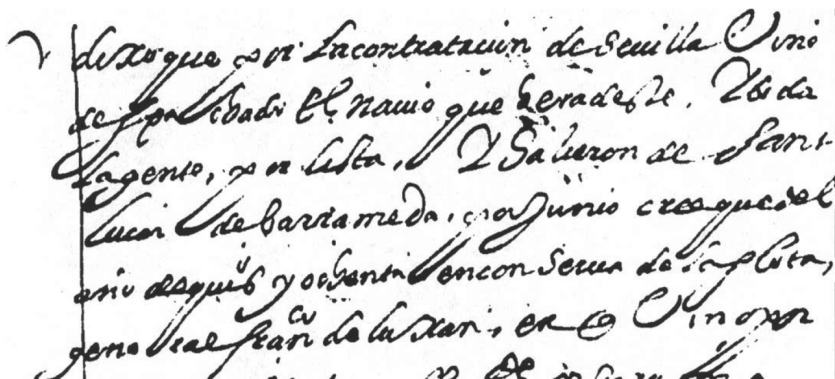 dixo que por la contratacion de Sevilla Vino
despachado El navio que hera deste. Y bida
la gente, por lista, Y Salieron de Sant
lucar de barrameda, por Junio cree que del
año de qui°s y ochenta en conserva de la flota,
general fran.co de luxan, en q Vino por